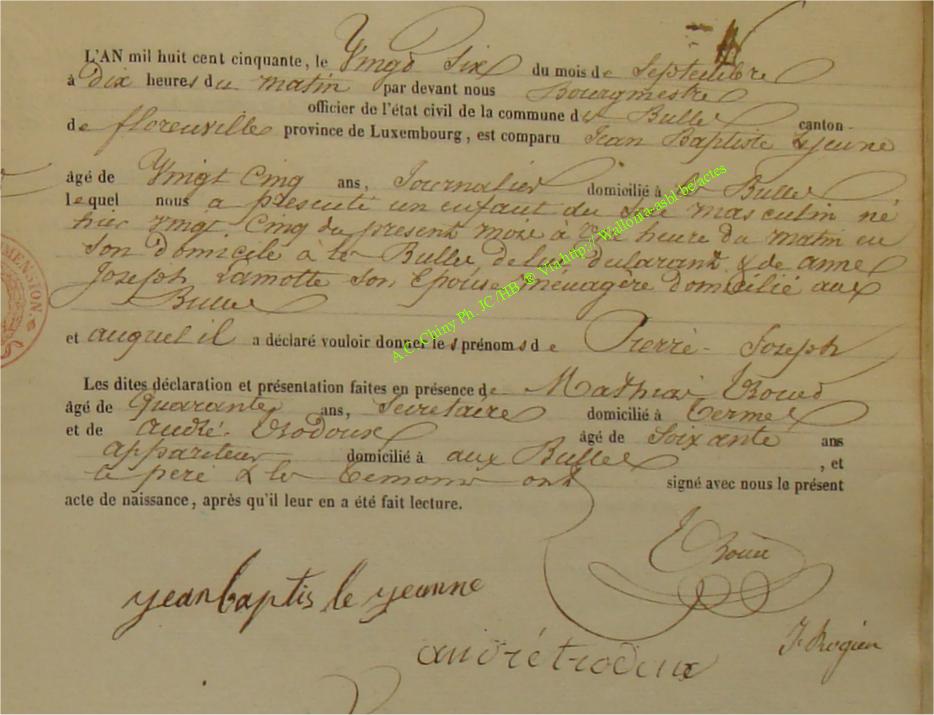 L'AN mil huit cent cinquante, le Vingt Six du mois de Septembre
à Dix heures du matin par devant nous Bourgmestre
officier de l'état civil de la commune de Bulles canton
de florenville province de Luxembourg, est comparu Jean Baptiste Lejeune
âgé de Vingt Cinq ans, Journalier domicilié à Bulles
lequel nous a presenté un enfant du Sexe masculin né
hier Vingt Cinq du present mois à heure du matin en
Son domicile à Bulles de lui declarant & de anne
Joseph Lamotte Son Epouse menagère domicilié aux
Bulles
et auquel il a déclaré vouloir donner les prénoms de Pierre - Joseph
Les dites déclaration et présentation faites en présence de
âgé de Quarante ans, Secretaire domicilié à Termes
et de andré Trodoux âgé de Soixante ans
appariteur domicilié à aux Bulles, et
le pere & les temoins ont signé avec nous le présent
acte de naissance, après qu'il leur en a été fait lecture.
yean baptis le yeunne
andrétrodoux
A.C. Chiny Ph. JC /HB @ Via http:// Wallonia-asbl-be/actes